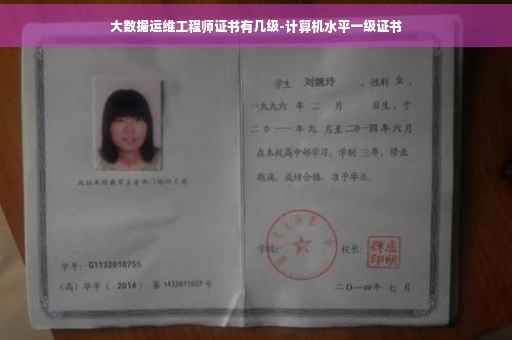 大数据运维工程师证书有几级-计算机水平一级证书
学生 刘婉玲 ，性别 女 ，
一九九六 年 二 月 日生，于
二〇一一年九 月至二〇一四年六月
在本校高中部学习，学制 三年，修业
期满，成绩合格，准予毕业。
学校： 校长：
学号： G1132010755
（高）毕字（ 2014 ）第 1432011027 号
二〇一四年 七 月